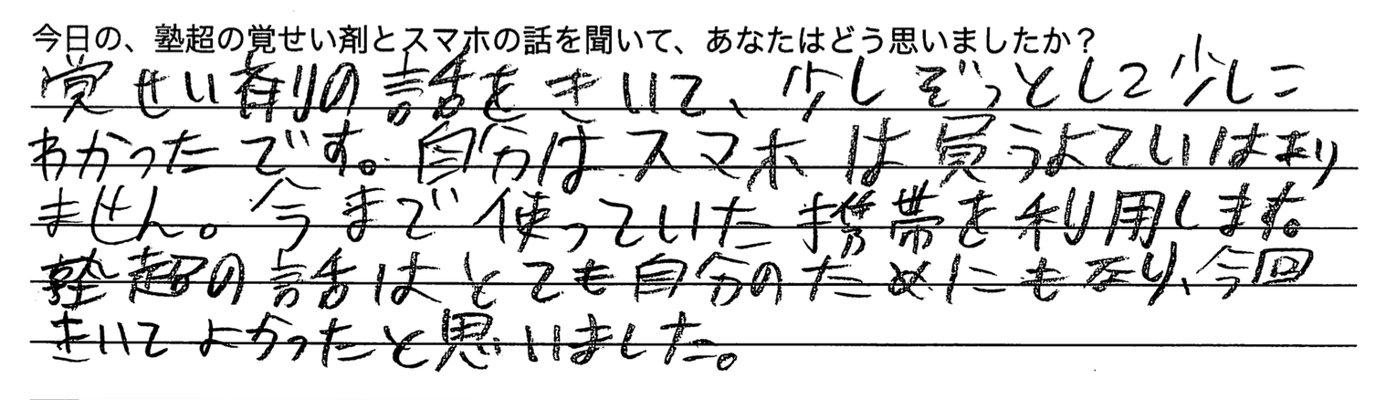 今日の、塾超の覚せい剤とスマホの話を聞いて、あなたはどう思いましたか？
覚せい剤の話をきいて、少しぞっとして少しこ
わかったです。自分はスマホは買うよていはあり
ません。今まで使っていた携帯を利用します。
塾超の話はとても自分のためにもなり、今回
きいてよかったと思いました。